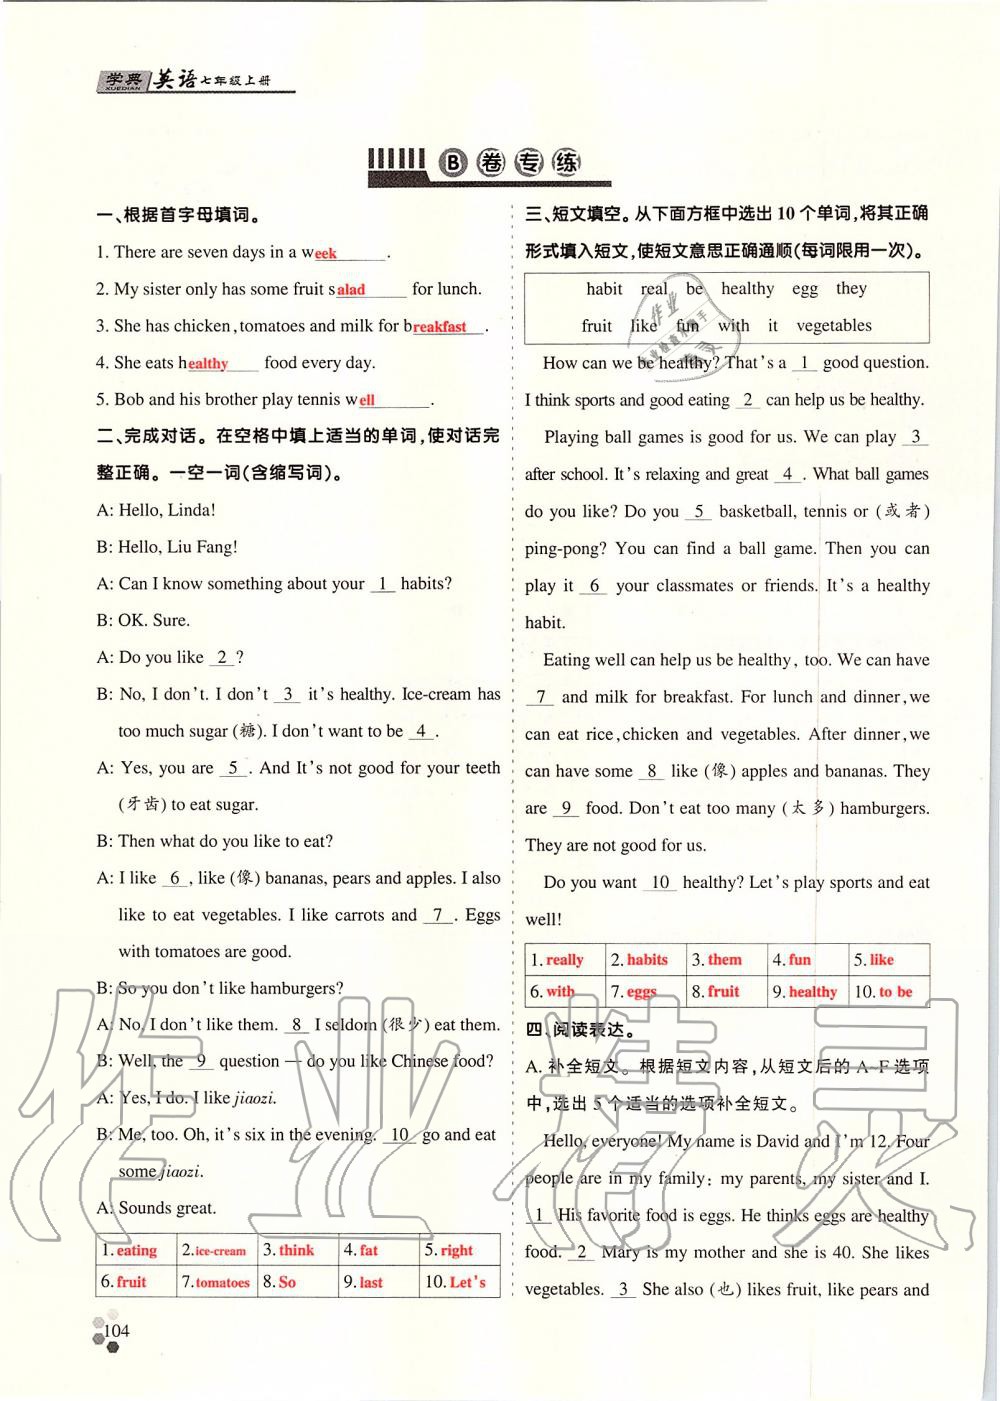 学典 英语七年级上册
XUEDIAN
B卷专练
一、根据首字母填词。
1. There are seven days in a week.
2. My sister only has some fruit salad for lunch.
3. She has chicken, tomatoes and milk for breakfast.
4. She eats healthy food every day.
5. Bob and his brother play tennis well.
二、完成对话。在空格中填上适当的单词,使对话完
整正确。一空一词(含缩写词)。
A: Hello, Linda!
B: Hello, Liu Fang!
A: Can I know something about your 1 habits?
B: OK. Sure.
A: Do you like 2 ?
B: No, I don't. I don't 3 it's healthy. Ice-cream has
too much sugar (糖). I don't want to be 4 .
A: Yes, you are 5 . And It's not good for your teeth
(牙齿) to eat sugar.
B: Then what do you like to eat?
A: I like 6 , like (像) bananas, pears and apples. I also
like to eat vegetables. I like carrots and 7 . Eggs
with tomatoes are good.
B: So you don't like hamburgers?
A: No, I don't like them. 8 I seldom (很少) eat them.
B: Well, the 9 question — do you like Chinese food?
A: Yes, I do. I like jiaozi.
B: Me, too. Oh, it's six in the evening. 10 go and eat
some jiaozi.
A: Sounds great.
1. eating 2. ice-cream 3. think 4. fat 5. right
6. fruit 7. tomatoes 8. So 9. last 10. Let's
104
三、短文填空。从下面方框中选出 10 个单词,将其正确
形式填入短文,使短文意思正确通顺(每词限用一次)。
habit real be healthy egg they
fruit like fun with it vegetables
How can we be healthy? That's a 1 good question.
I think sports and good eating 2 can help us be healthy.
Playing ball games is good for us. We can play 3
after school. It's relaxing and great 4 . What ball games
do you like? Do you 5 basketball, tennis or (或者)
ping-pong? You can find a ball game. Then you can
play it 6 your classmates or friends. It's a healthy
habit.
Eating well can help us be healthy, too. We can have
7 and milk for breakfast. For lunch and dinner, we
can eat rice, chicken and vegetables. After dinner, we
can have some 8 like (像) apples and bananas. They
are 9 food. Don't eat too many (太多) hamburgers.
They are not good for us.
Do you want 10 healthy? Let's play sports and eat
well!
1. really 2. habits 3. them 4. fun 5. like
6. with 7. eggs 8. fruit 9. healthy 10. to be
四、阅读表达。
A. 补全短文。根据短文内容,从短文后的 A-F 选项
中,选出 5 个适当的选项补全短文。
Hello, everyone! My name is David and I'm 12. Four
people are in my family: my parents, my sister and I.
1 His favorite food is eggs. He thinks eggs are healthy
food. 2 Mary is my mother and she is 40. She likes
vegetables. 3 She also (也) likes fruit, like pears and
作业精灵